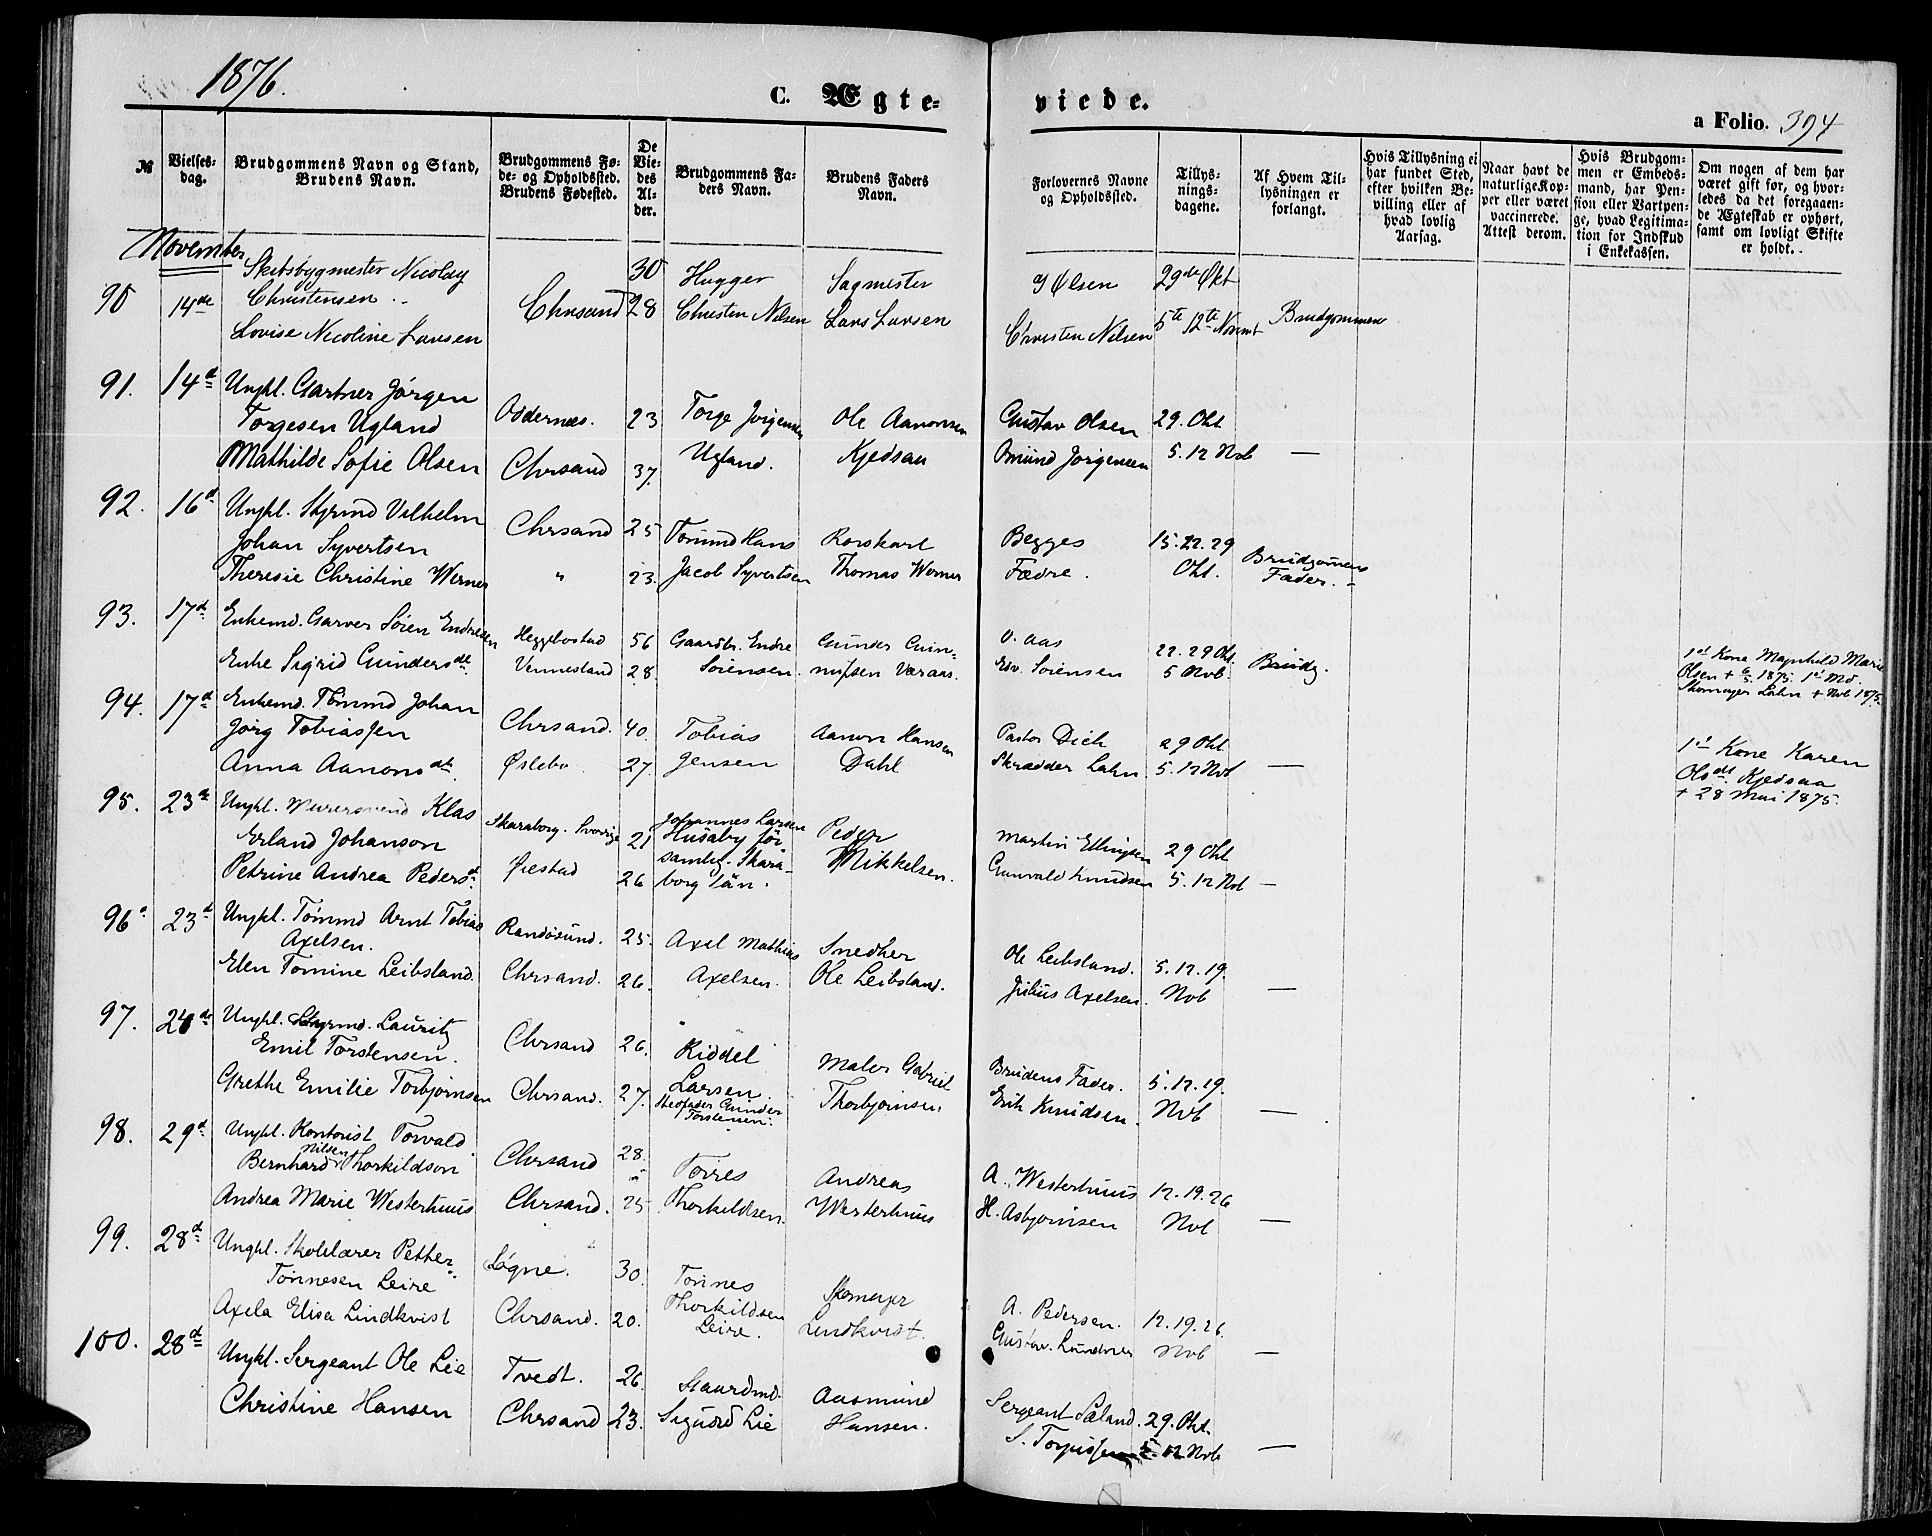 1876.
C. Ægte-
viede.
a Folio. 394
№
Vielses-
dag.
Brudgommens Navn og Stand,
Brudens Navn.
Brudgommens Fø-
de- og Opholdssted.
Brudens Fødested.
De
Vie-
des
Al-
der.
Brudgommens Fa-
ders Navn.
Brudens Faders
Navn.
Forlovernes Navne
og Opholdssted.
Tillys-
nings-
dagene.
Af Hvem Til-
lysningen er
forlangt.
Hvis Tillysning ei
har fundet Sted,
efter hvilken Be-
villing eller af
hvad lovlig
Aarsag.
Naar havt de
naturlige Kop-
per eller været
vaccinerede.
Attest derom.
Hvis Brudgom-
men er Embeds-
mand, har Pen-
sion eller Vartpen-
ge, hvad Legitima-
tion for Indskud
i Enkekassen.
Om nogen af dem har
været gift før, og hvor-
ledes da det foregaaen-
de Ægteskab er ophørt,
samt om lovligt Skifte
er holdt.
November
90 14de Skibsbygmester Nicolay 30 Hugger Sagmester Ølsen 29de Okt
Christensen Chrsand 28 Christen Nilsen Lars Larsen 5te 12te Novmt Brudgommen
Lovise Nicoline Larsen Christen Nilsen
91. 14d Ungkl. Gartner Jörgen
Torgesen Ugland Oddernæs. 23 Torge Jörgensen Ole Aanonsen Gustav Olsen 29. Okt
Mathilde Sofie Olsen Chrsand 37. Ugland. Kjedsaa Jörgensen 5. 12 Nob —
92. 16d Ungkl. Styrmd Vilhelm
Johan Syvertsen Chrsand 25 Tömmd Hans Rorskarl Begges 15. 22. 29
Theresie Christine Werner " 23. Jacob Syvertsen Thomas Werner Fædre. Okt. Brudgomens
Fader. -
93. 17d Enkemd. Garver Sören Endresen Heggebostad 56 Gaardbr. Endre Gunder Gun- O. Aas 22. 29 Okt.
Enke Sigrid Gundersdt Vennesland 28. Sörensen. nufsen Væraas. Edv. Sörensen 5 Nob Brudg. 1st Kone Magnhild Marie
Olsen + 1875. 1st Md.
Skomager Lahn + Nob 1875.
94. 17d Enkemd. Tömmd Johan
Jörg Tobiassen Chrsand. 40. Tobias Aanon Hansen Pastor Dick 29 Okt
Anna Aanonsdt. Øslebø 27. Jensen Dahl Skrædder Lahn 5. 12 Nob — 1st Kone Karen
Olsdt. Kjedsaa
+ 28 Mai 1875.
95. 23d Ungkl. Murersvend Klas
Erland Johanson Skaraborg. Sverrige 21 Johannes Larsen
Husaby för Peder Martin Ellingsen 29 Okt
Petrine Andrea Pedersdt Øiestad 26 samlng. Skara-
borg län. Mikkelsen. Gunvald Knudsen 5. 12 Nob —
96. 23d Ungkl. Tömmd Arnt Tobias
Axelsen. Randösund. 25. Axel Mathias Snedker Ole Leibsland. 5. 12. 19.
Elen Tomine Leibsland. Chrsand. 26. Axelsen. Ole Leibsland. Julius Axelsen. Nob —
97. 24de Ungkl. Styrmd. Lauritz
Emil Torstensen. Chrsand 26. Riddel Maler Gabriel Brudens Fader. 5. 12. 19.
Grethe Emilie Torbjörnsen Chrsand. 27. Larsen.
Stedfader Gunder
Torstensen. Thorbjörnsen Erik Knudsen. Nob —
98. 29d Ungkl. Kontorist Torvald
Bernhard Nilsen Thorkildson Chrsand 28. Törres Andreas A. Westerhuus 12. 19. 26
Andrea Marie Westerhuus Chrsand. 25 Thorkildsen. Westerhuus H. Asbjörnsen Nob —
99. 28d Ungkl. Skolelærer Petter
Tönnesen Leire Søgne. 30. Tönnes Skomager
Axela Elisa Lindkvist Chrsand. 20. Thorkildsen
Leire. Lindkvist. A. Pedersen. 12. 19. 26.
Gustav. Lundner Nob —
100. 28d Ungkl. Sergeant Ole Lie Tvedt. 26. Gaardmd. Aasmund Sergeant Sæland. 29. Okt.
Christine Hansen Chrsand 23. Sigurd Lie Hansen. S. Torjussen 5. 12 Nob —